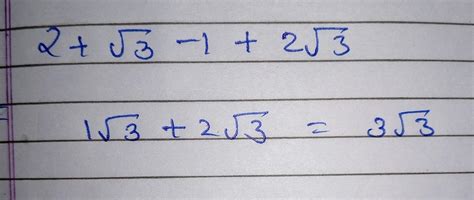 2 + √3 - 1 + 2√3
1√3 + 2√3 = 3√3